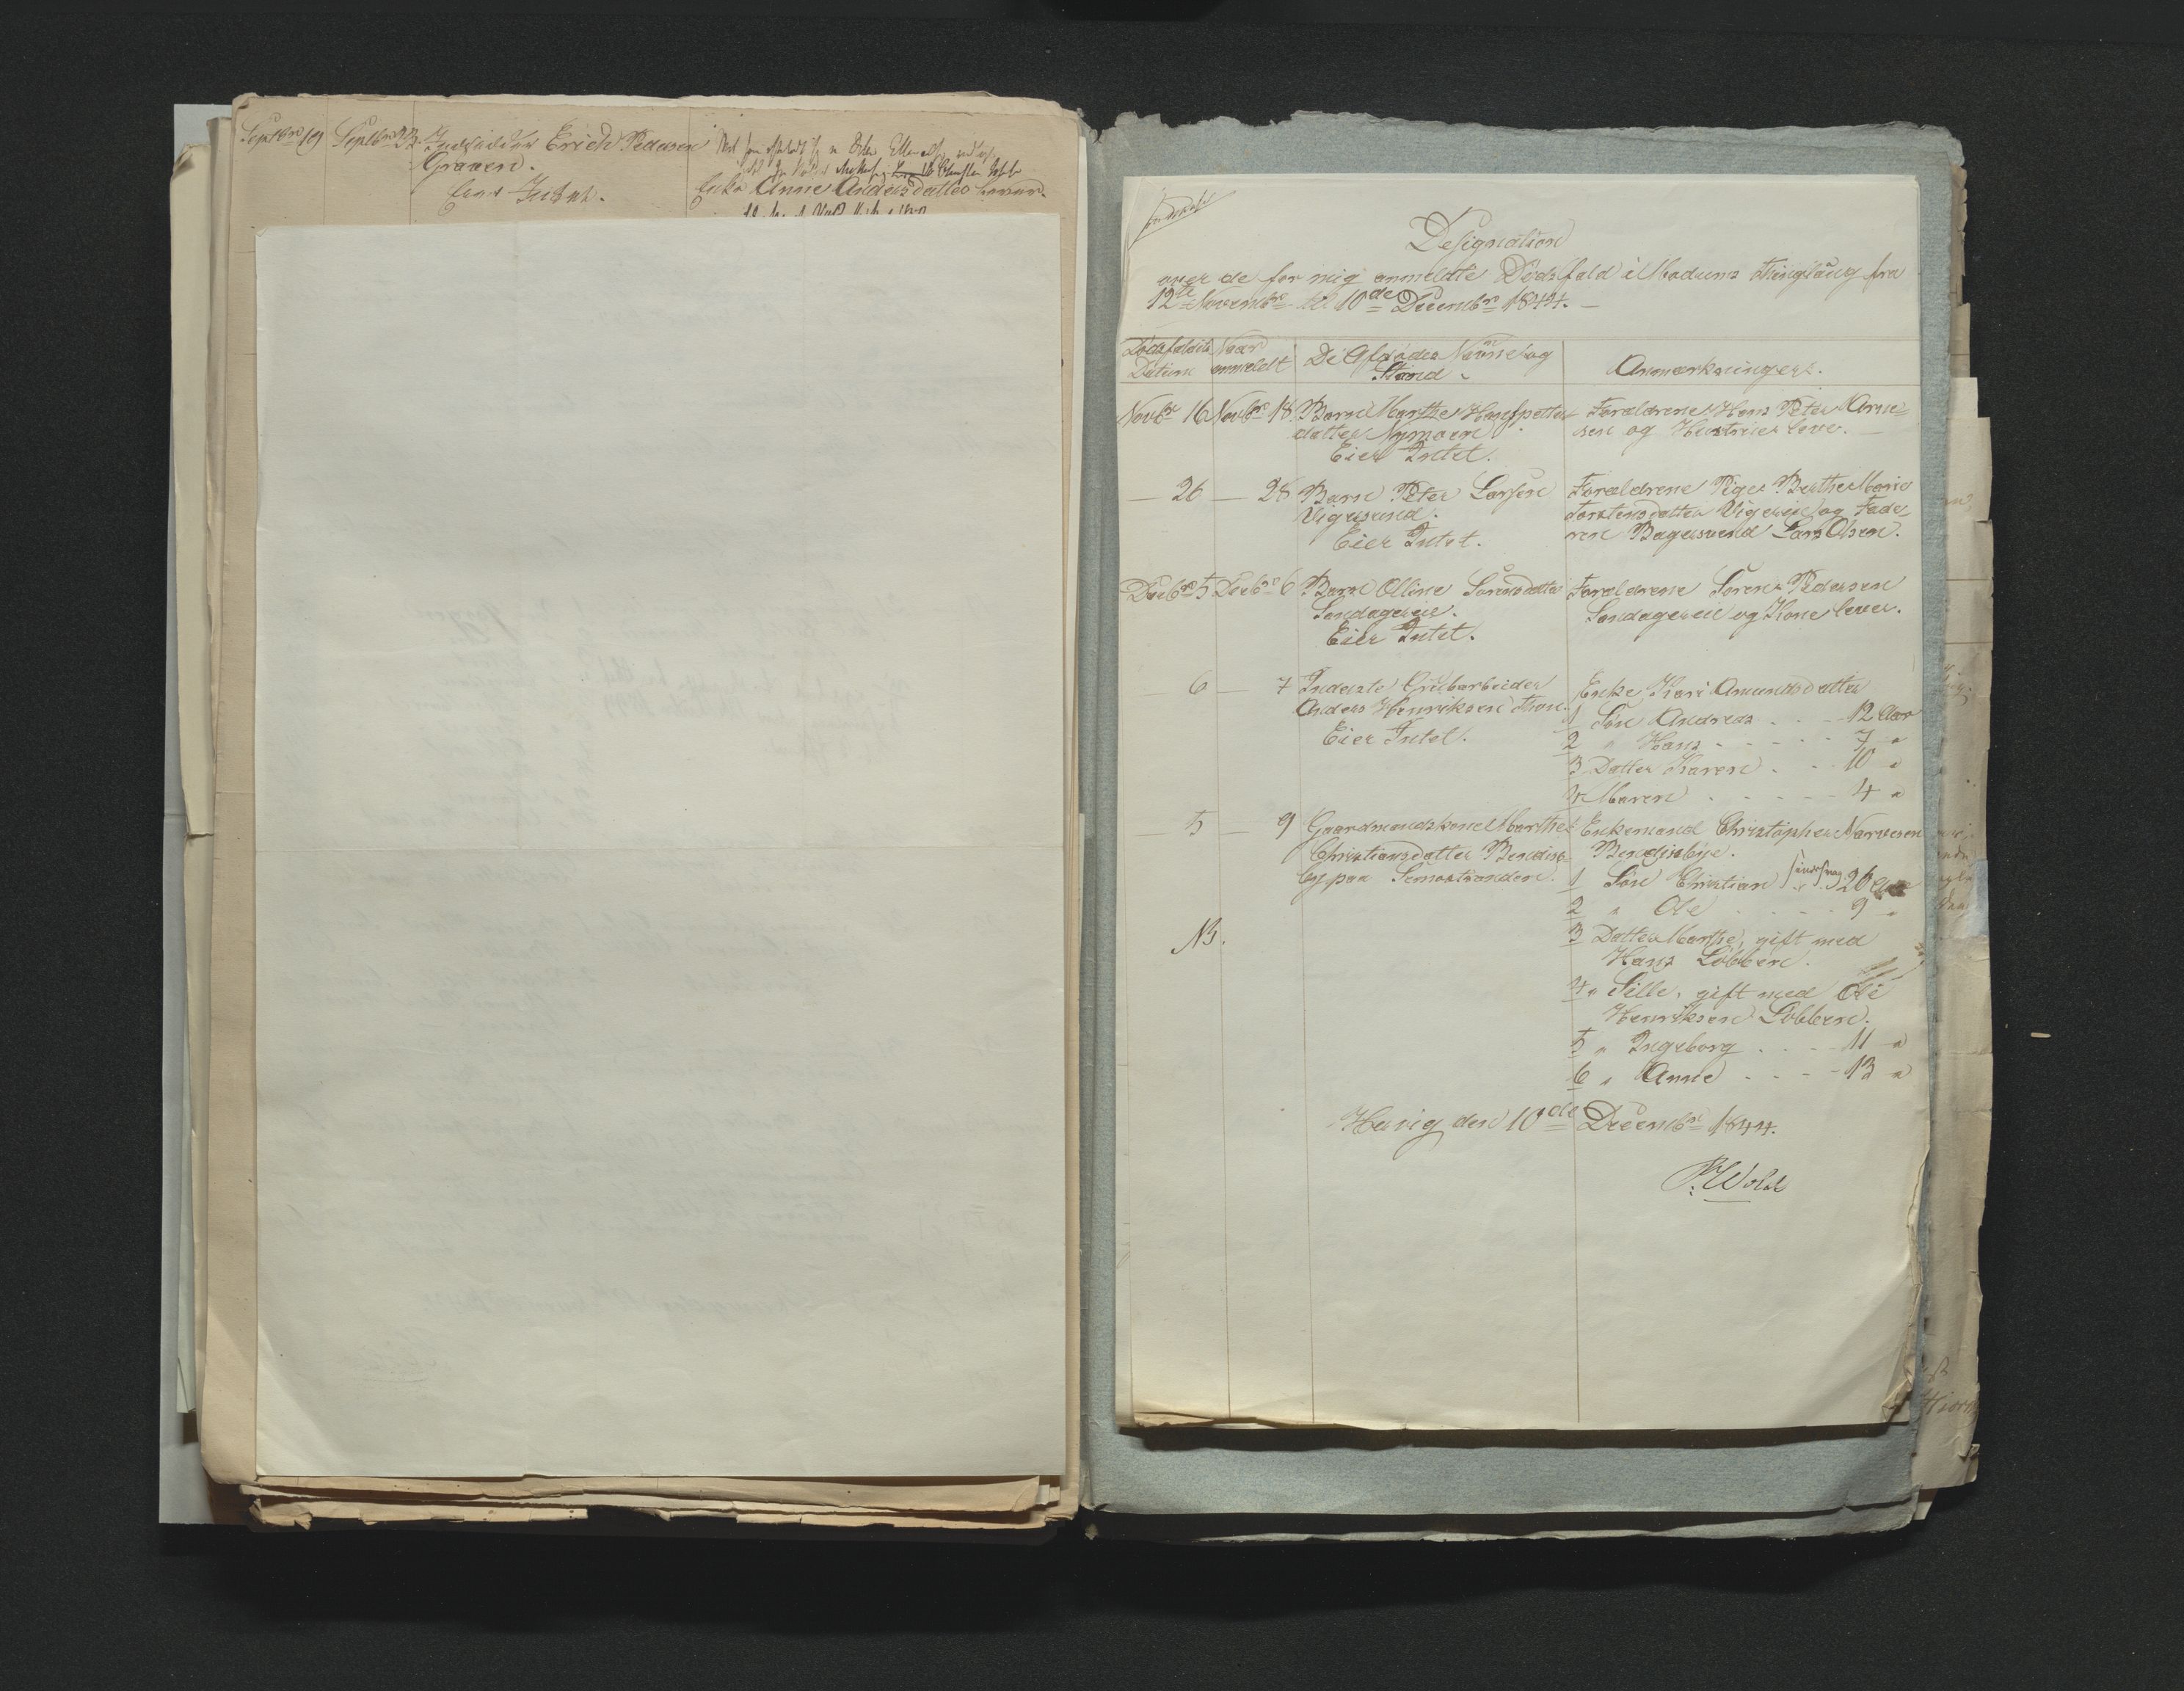 Septbr 19 Septbr 23 Inderst Erich Pedersen
Graaen.
Eier Intet.
Enke Anne Andersdatter lever.
Designation
over de for mig anmeldte Dødsfald i Modums Thinglaug fra
12te Novembr til 10de Decembr 1844.
Dødsfaldets Datum
Naar anmeldt
De Afdødes Navne og Stand.
Anmærkninger.
Novbr 16 Novbr 18 Barn Marthe Hanspetter-
datter Nymoen
Eier Intet.
Forældrene Hans Peter Arne-
sen og Hustrue leve.
— 26 — 28 Barn Peter Larsen
Vigersund.
Eier Intet.
Forældrene Pige Berthe Marie
Torstensdatter Vigereie og Fade-
ren Bagersvend Lars Olsen.
Decbr 5 Decbr 6 Barn Olline Sørensdatter
Søndagereie.
Eier Intet.
Forældrene Søren Pedersen
Søndagereie og Kone lever.
— 6 — 7 Inderste Grubarbeider
Anders Henriksen Thon.
Eier Intet.
Enke Kari Amundsdatter
1 Søn Andreas . . . 12 Aar
2 " Hans . . . . . 7 "
3 Datter Karen . . . 10 "
4 Maren . . . . . 4 "
— 5 — 9 Gaardmandskone Marthe
Christiansdatter Bendixe-
by paa Semsstranden.
Enkemand Christopher Narvesen
Bendixebye.
1 Søn Christian sindssvag 26 Aar
2 " Ole . . . . 9 "
NB.
3 Datter Marthe, gift med
Hans Løbben.
4 " Sille, gift med Ole
Henriksen Løbben.
5 " Ingeborg . . . . 11 "
6 " Anne . . . . 13 "
Hævig den 10de Decembr 1844.
P. Wold